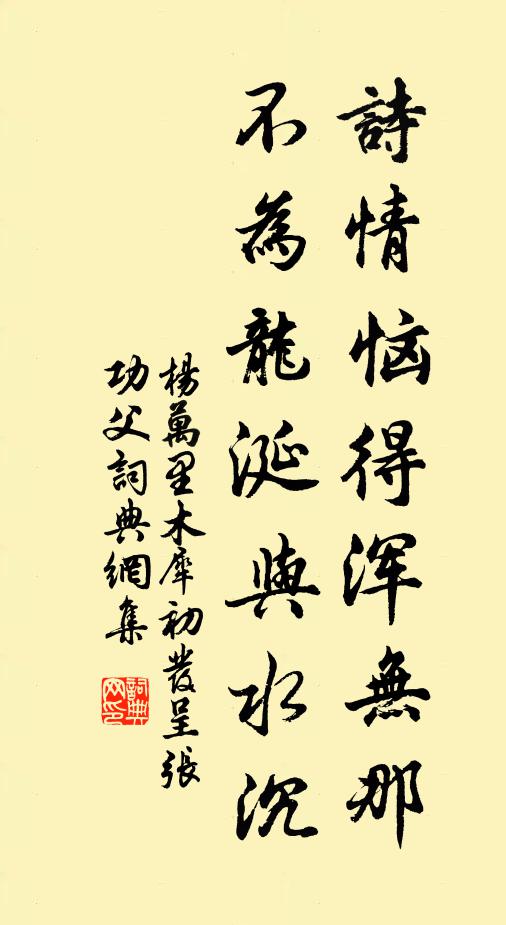 詩情恼得浑無那
不為龍涎與水沉
楊萬里木犀初發呈張
功父詞典網集
詞典
网印